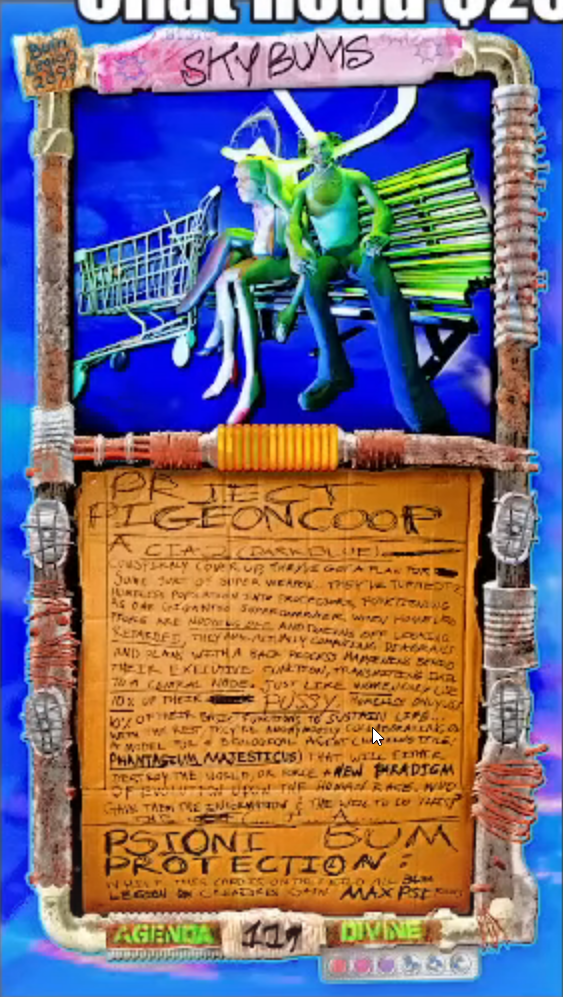 Chat head $20
Bum
Legion
SKY BUMS
PR JECT
PIGEONCOOP
A CIA-2 (DARKBLUE)
CONSPIRACY COVER UP, THEY'VE GOT A PLAN FOR
SOME SORT OF SUPER WEAPON. THEY'VE TURNED THE
HOMELESS POPULATION INTO PROCESSORS, FUNCTIONING
AS ONE GIGANTIC SUPERCOMPUTER, WHEN HOMELESS
PEOPLE ARE NODDING OFF AND LOOKING
RETARDED, THEY ARE ACTUALLY COMPUTING DIAGRAMS
AND PLANS WITH A BACK PROCESS HAPPENING BEHIND
THEIR EXECUTIVE FUNCTION, TRANSMITTING DATA
TO A CENTRAL NODE. JUST LIKE USE
10% OF THEIR PUSSY, ONLY USE
10% OF THEIR BASIC FUNCTIONS TO SUSTAIN LIFE...
WITH THE REST, THEY'RE ANONYMOUSLY
A MODEL FOR A BIOLOGICAL AGENT
PHANTASIUM MAJESTICUS) THAT WILL EITHER
DESTROY THE WORLD, OR FORCE A NEW PARADIGM
OF EVOLUTION UPON THE HUMAN RACE. WHO
GAVE THEM THE INFORMATION & THE WILL TO DO THIS?
PSIONI BUM
PROTECTION:
WHILE THIS CARD IS ON THE FIELD ALL BUM
LEGION CREATURES GAIN MAX PSI
AGENDA 119 DIVINE